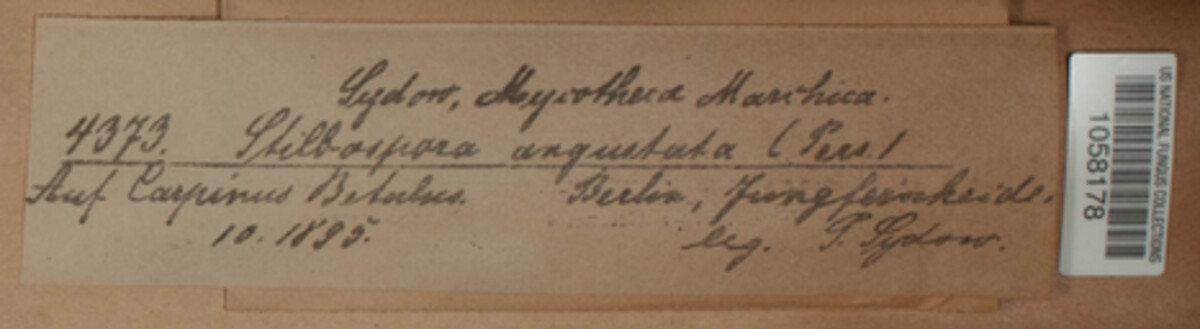 Sydow, Mycotheca Marchica.
4373. Stilbospora angustata (Pers.)
Auf Carpinus Betulus. Berlin, Jungfernheide.
10. 1895. leg. P. Sydow.
US NATIONAL FUNGUS COLLECTIONS
1058178